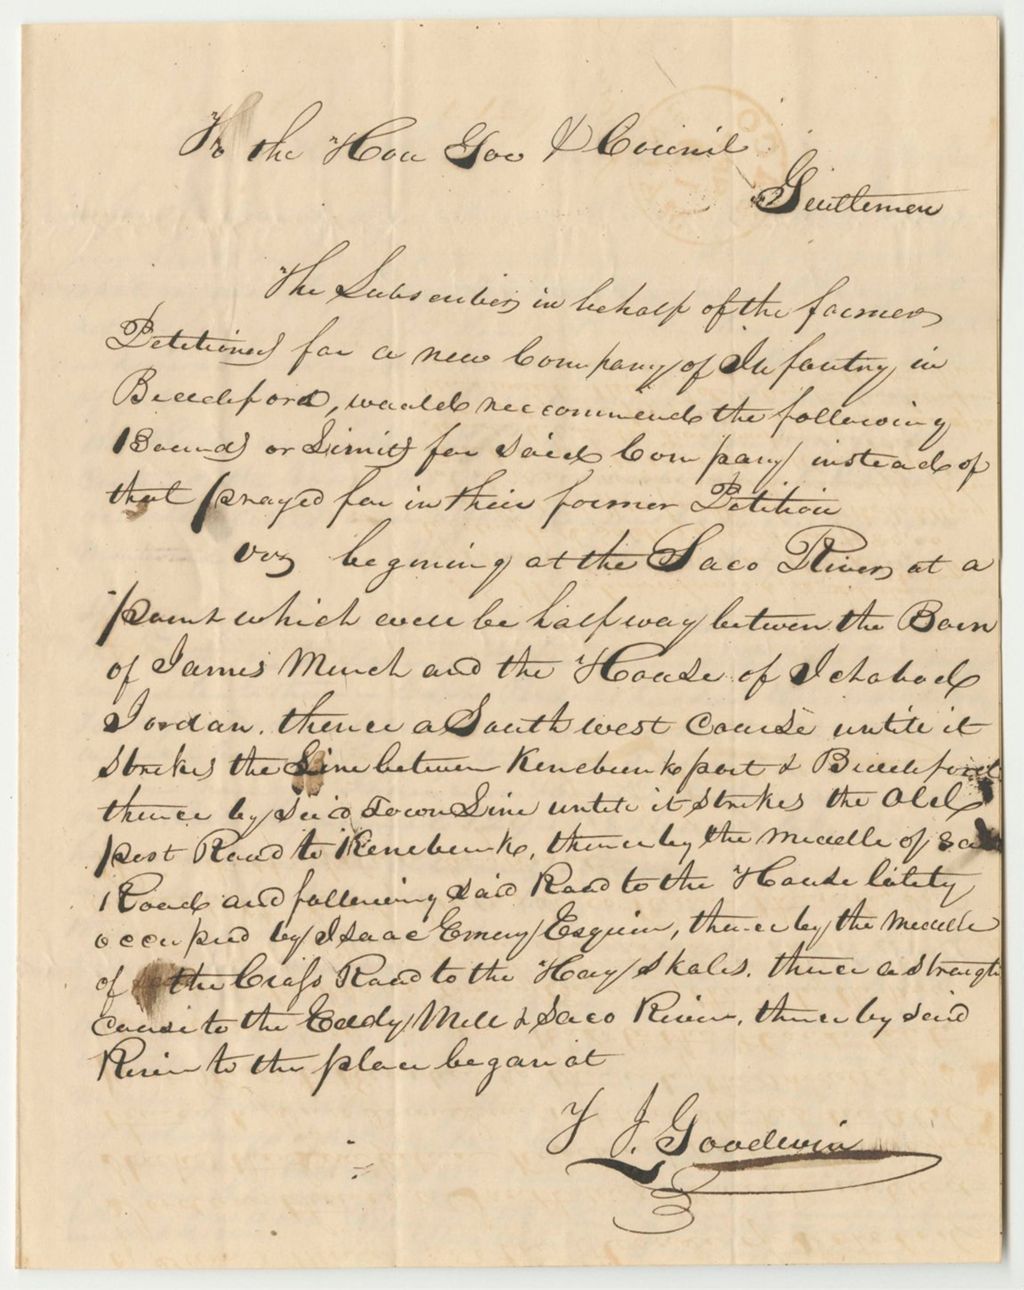 To the Hon Gov & Council
Gentlemen
The Subscriber in behalf of the former
Petitioners for a new Company of Infantry in
Biddeford, would reccommend the following
Bounds or Limits for said Company instead of
that prayed for in their former Petition
viz begining at the Saco River at a
point which will be half way between the Barn
of James Murch and the House of Ichabod
Jordan. thence a South west Course untill it
strikes the Line between Kenebunkport & Biddeford
thence by said Town Line untill it strikes the Old
post Road to Kenebunk, thence by the middle of said
Road and following said Road to the House lately
occupied by Isaac Emery Esquire, thence by the middle
of the Cross Road to the Hay Skales. thence a straight
Course to the Eddy Mill & Saco River, thence by said
River to the place began at
J. Goodwin